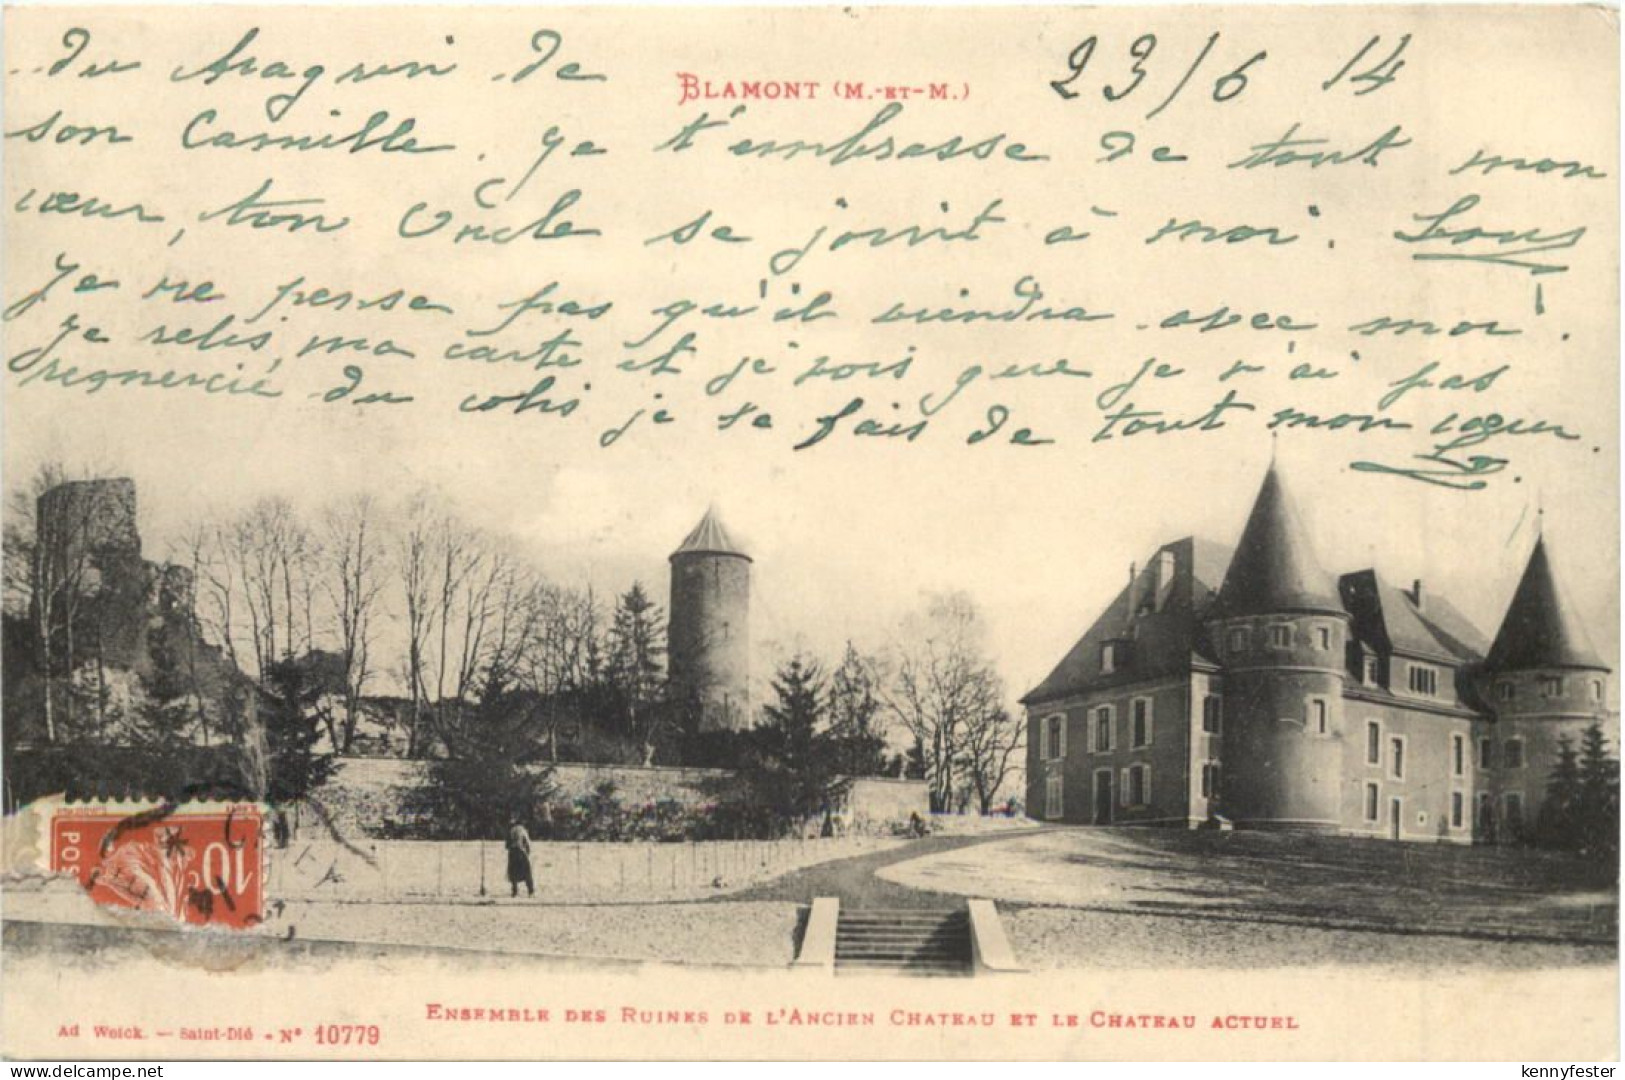 du chagrin de
BLAMONT (M.-ET-M.)
23/6 14
son Camille. Je t'embrasse de tout mon
cœur, ton Oncle se joint à moi.
Je ne pense pas qu'il viendra avec moi.
Je relis ma carte et je vois que je n'ai pas
remercié du colis je te fais de tout mon cœur.
10
POS
ENSEMBLE DES RUINES DE L'ANCIEN CHATEAU ET LE CHATEAU ACTUEL
Ad Weick. — Saint-Dié - N° 10779
delcampe.net
kennyfester